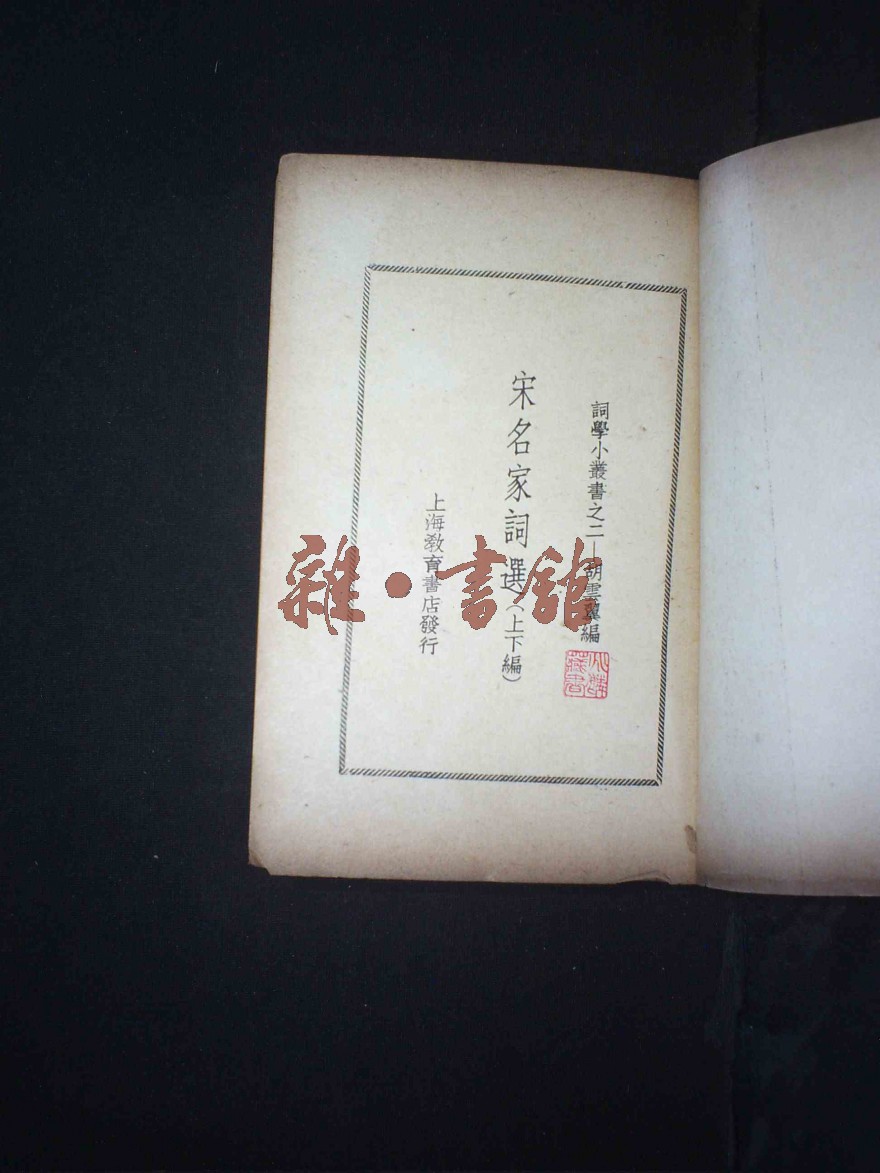 詞學小叢書之二—胡雲翼編
宋名家詞選(上下編)
上海敎育書店發行
雜·書館
藏書